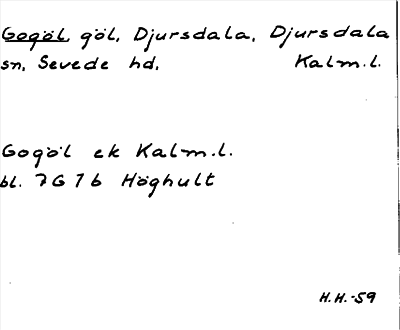 Gogöl, göl, Djursdala, Djursdala
sn, Sevede hd, Kalm.l.
Gogöl ek Kalm.l.
bl. 7G7b Höghult
H.H.-59